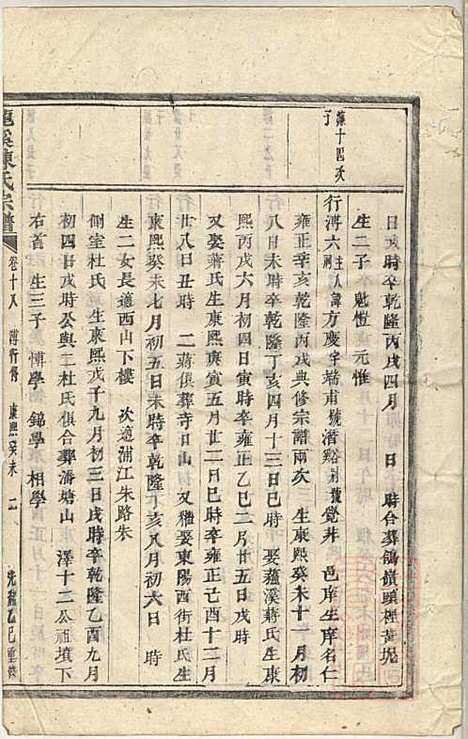 溥十四次
子
日戌時卒乾隆丙戌四月　日　時合葬鴿嶺頭裡黃坭
生二子　魁惟　元惟
行溥六主人諱方慶字端甫號潛谿別號覺非　邑庠生庠名仁
雍正辛亥乾隆丙戌典修宗譜兩次　生康熙癸未十一月初
八日未時卒乾隆丁亥四月十三日巳時　娶蘊溪蔣氏生康
熙丙戌六月初四日寅時卒雍正乙巳二月廿五日戌時
又娶蔣氏生康熙庚寅五月廿二日巳時卒雍正己酉十二月
廿八日丑時　二蔣俱葬寺日山　又繼娶東陽西街杜氏生
康熙癸未七月初五日未時卒乾隆丁亥八月初六日　時
生二女長適西山下樓　次適浦江朱路朱
側室杜氏　生康熙戊子九月初三日戌時卒乾隆乙酉九月
初四日戌時公與二杜氏俱合葬潘塘山　澤十二公祖墳下
右首　生三子　博學　錦學　相學
龍溪陳氏宗譜　卷十八　溥行傳　康熙癸未　二　光緒乙巳重修